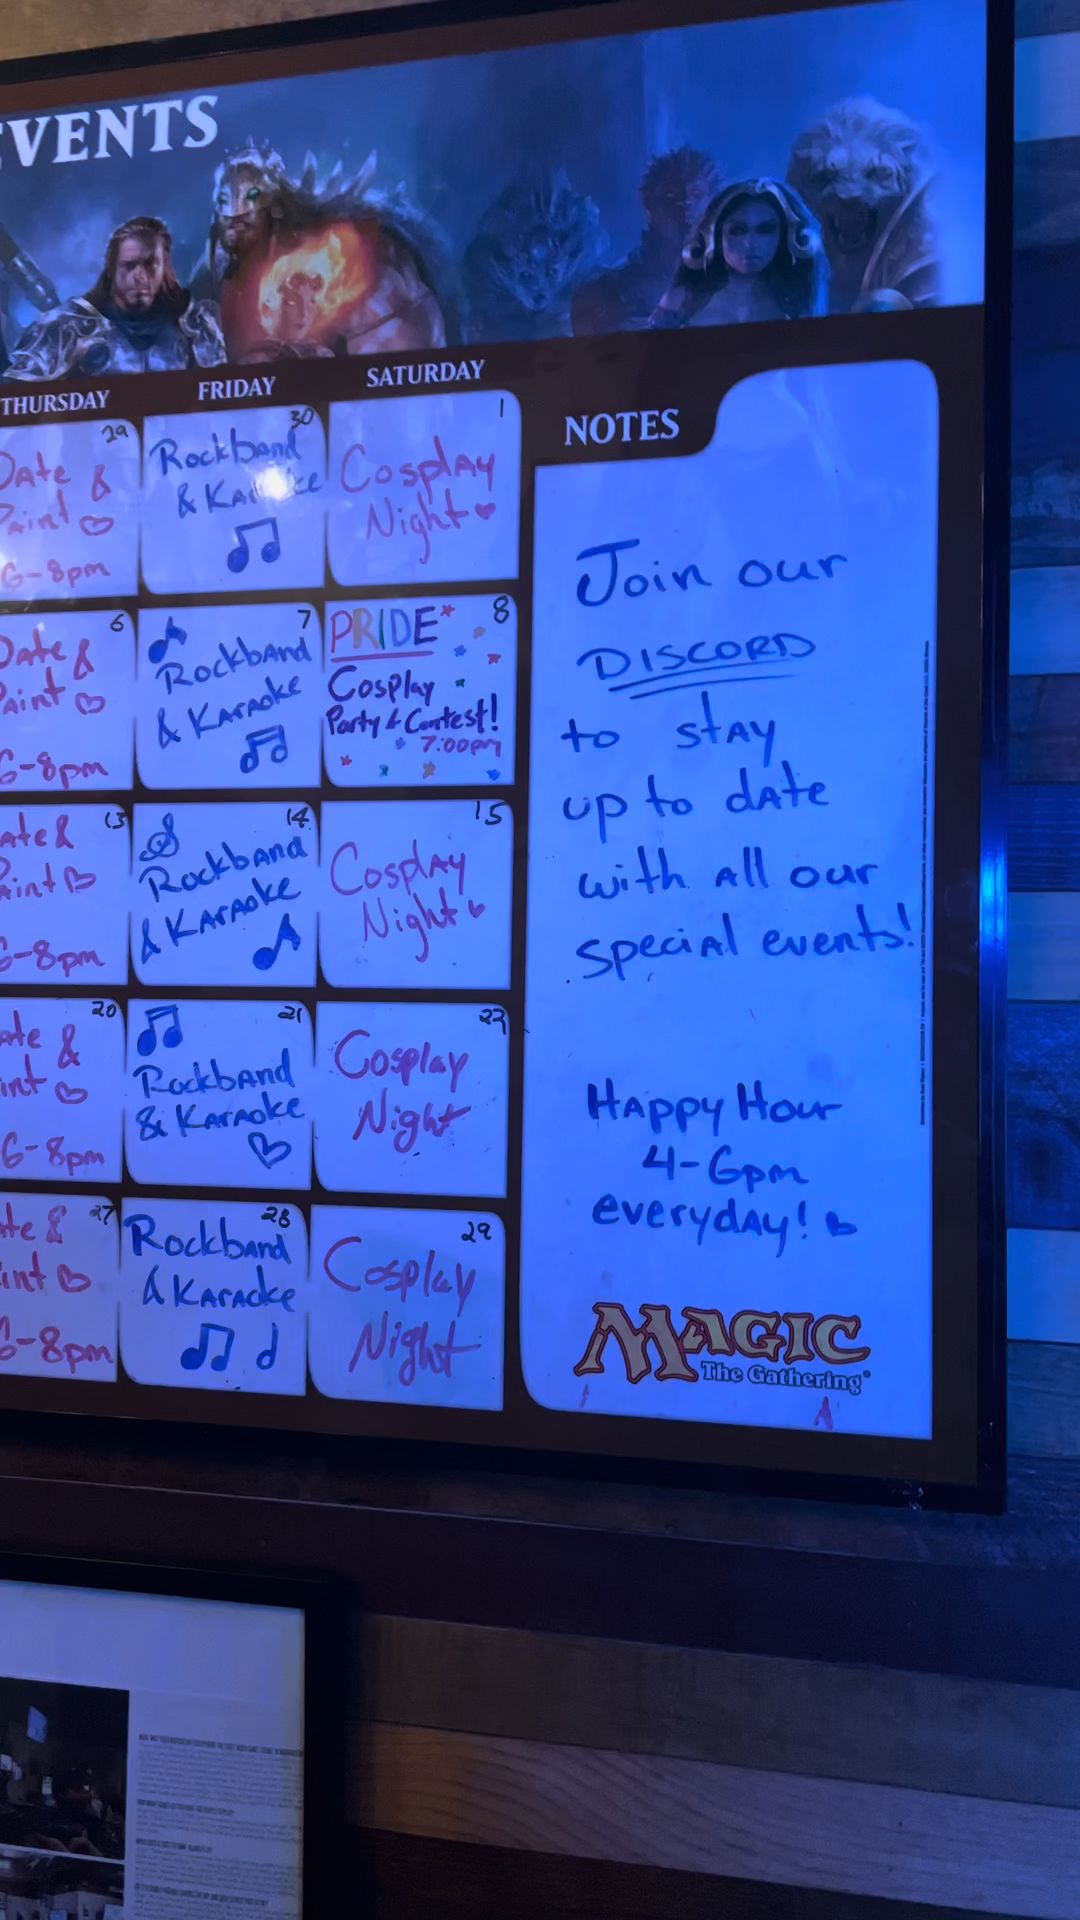 EVENTS
THURSDAY
FRIDAY
SATURDAY
29
Date &
Paint
6-8pm
30
Rockband
& Karaoke
1
Cosplay
Night
6
Date &
Paint
6-8pm
7
Rockband
& Karaoke
8
PRIDE
Cosplay
Party & Contest!
7:00pm
13
ate &
aint
6-8pm
14
Rockband
& Karaoke
15
Cosplay
Night
20
ate &
int
6-8pm
21
Rockband
& Karaoke
22
Cosplay
Night
27
te &
int
6-8pm
28
Rockband
& Karaoke
29
Cosplay
Night
NOTES
Join our
DISCORD
to stay
up to date
with all our
special events!
Happy Hour
4-6pm
everyday!
MAGIC
The Gathering®